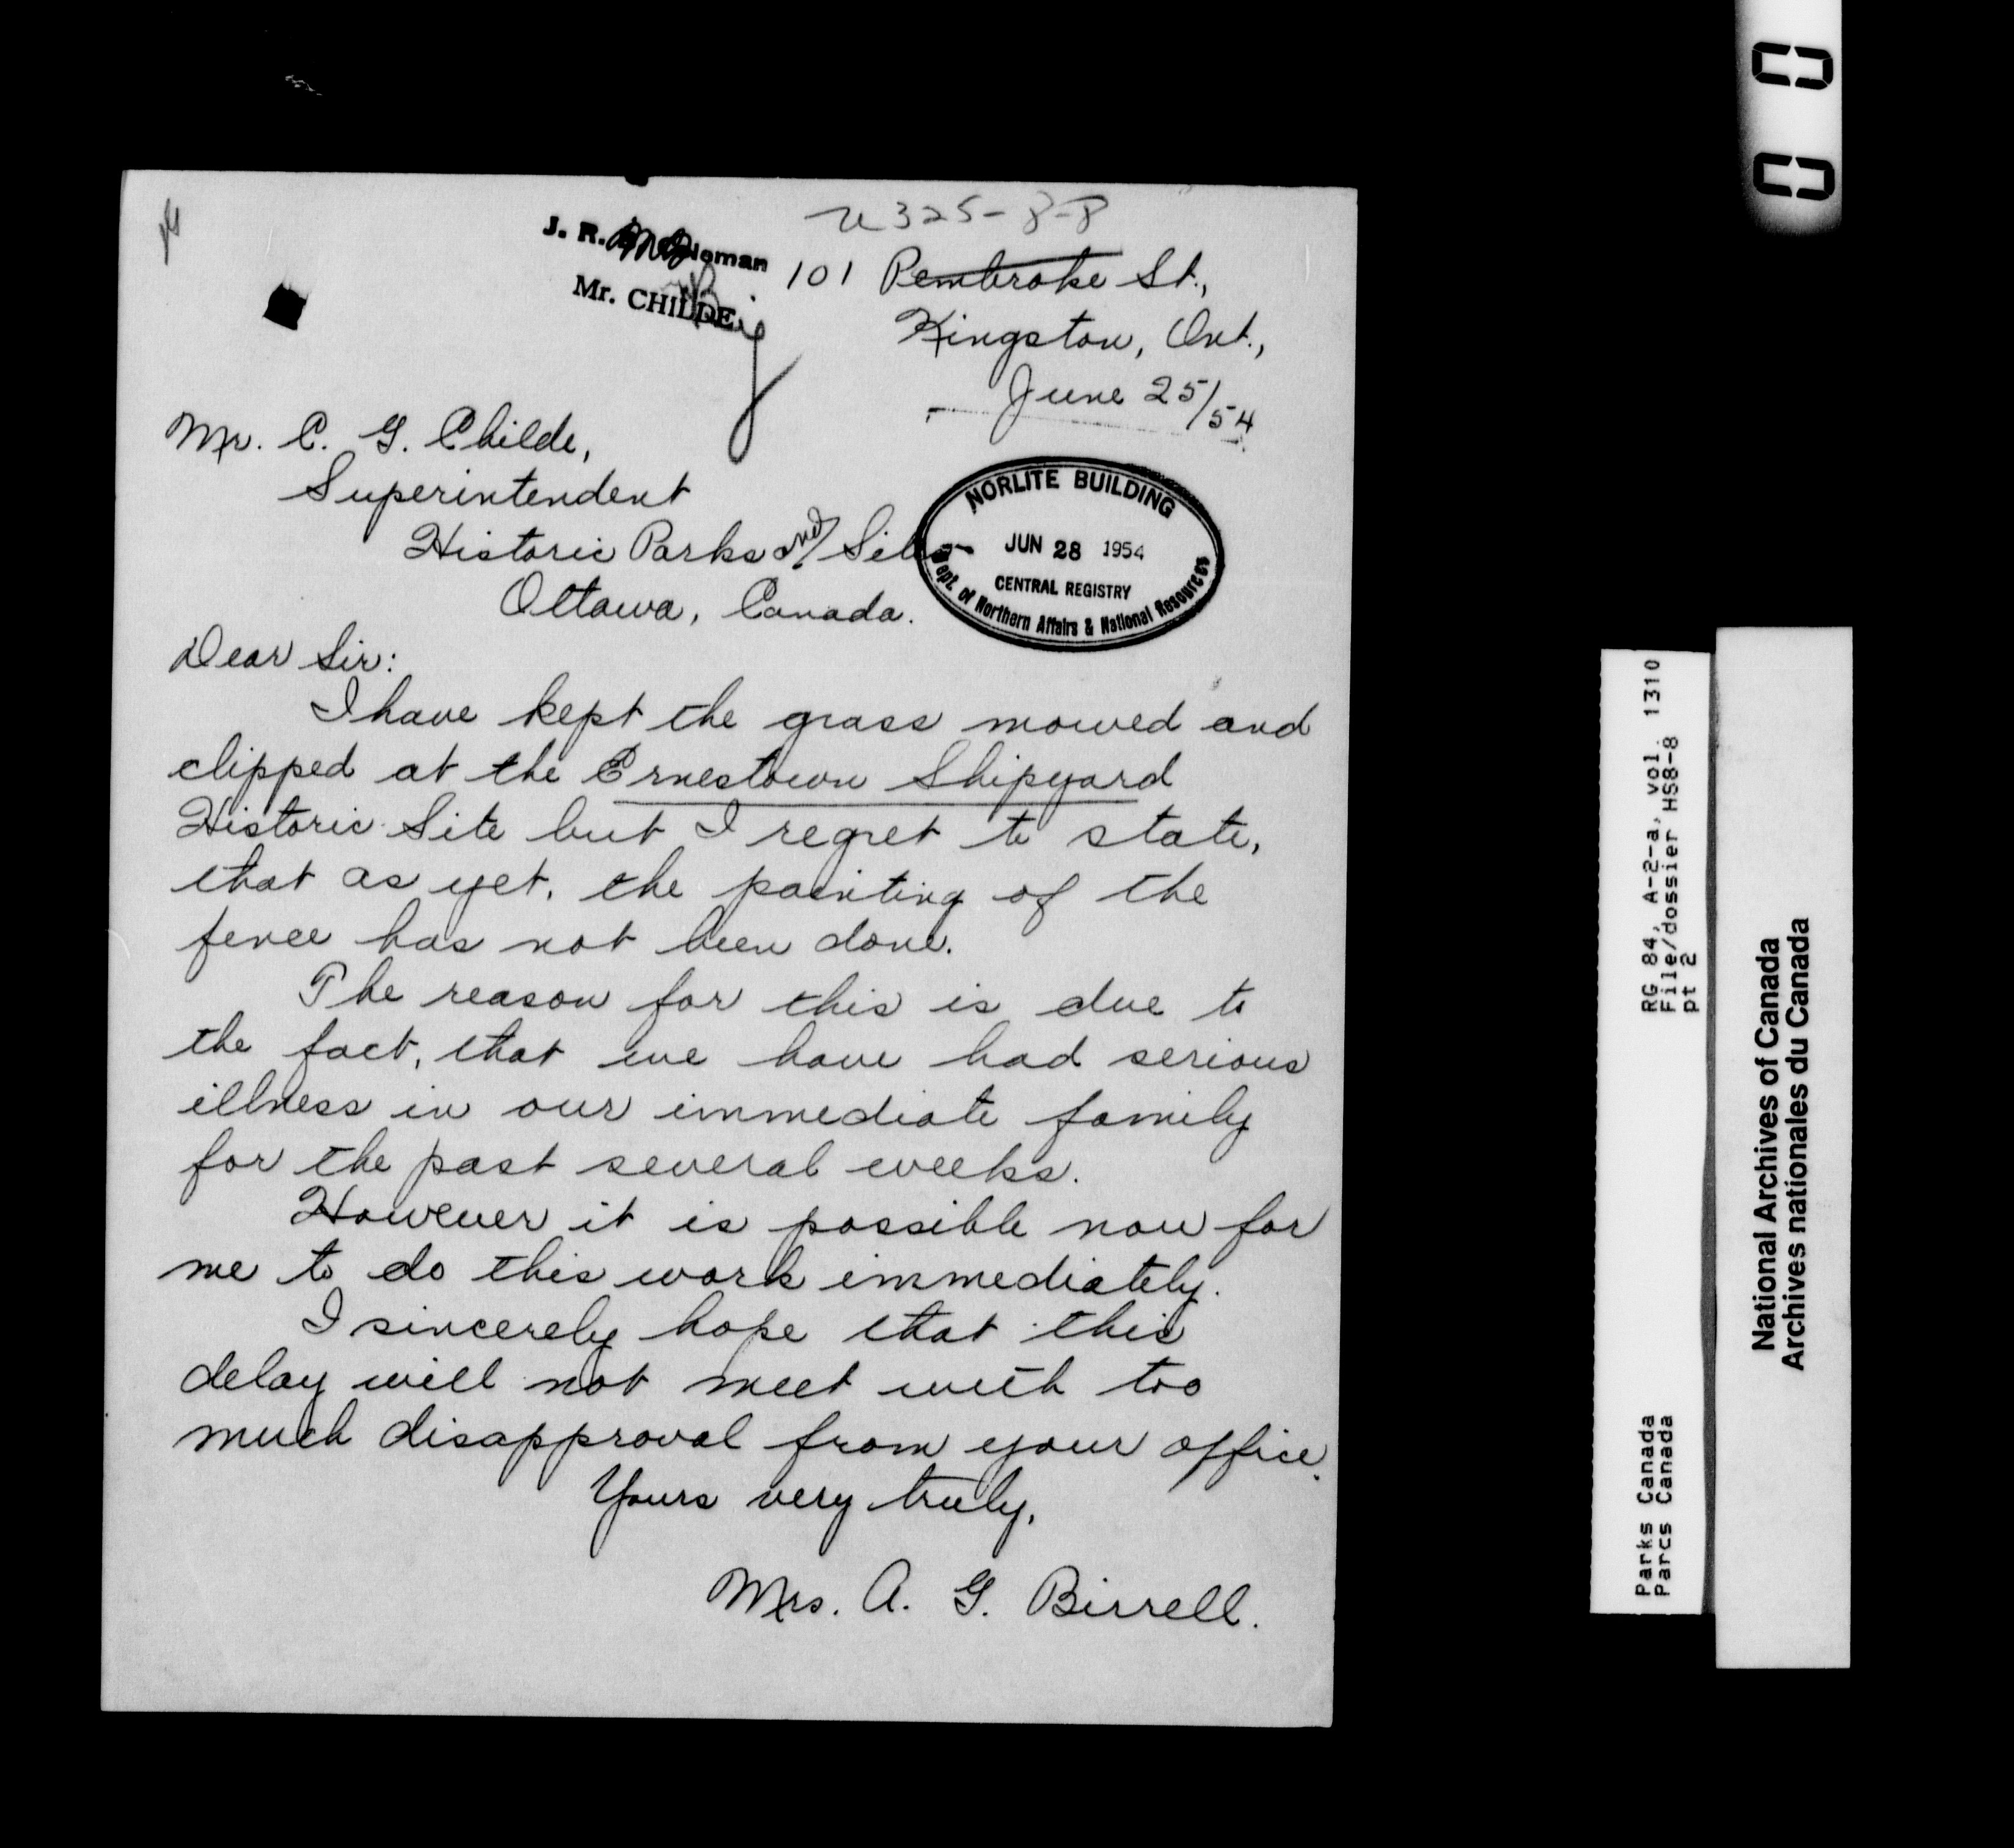 U325-8-8
J. R.
Mr. CHILDE
101 Pembroke St.,
Kingston, Ont.,
June 25/54
Mr. C. G. Childe,
Superintendent
Historic Parks and Sites
Ottawa, Canada.
NORLITE BUILDING
JUN 28 1954
CENTRAL REGISTRY
Dept. of Northern Affairs & National Resources
Dear Sir:
I have kept the grass mowed and
clipped at the Ernestown Shipyard
Historic Site but I regret to state,
that as yet, the painting of the
fence has not been done.
The reason for this is due to
the fact, that we have had serious
illness in our immediate family
for the past several weeks.
However it is possible now for
me to do this work immediately.
I sincerely hope that this
delay will not meet with too
much disapproval from your office.
Yours very truly,
Mrs. A. G. Birrell.
00
RG 84, A-2-a, vol. 1310
File/dossier HS8-8
pt 2
Parks Canada
Parcs Canada
National Archives of Canada
Archives nationales du Canada